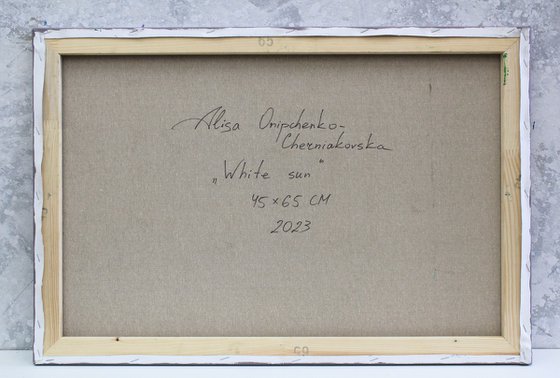 65
Alisa Onipchenko-
Cherniakovska
„White sun"
45 × 65 CM
2023
65